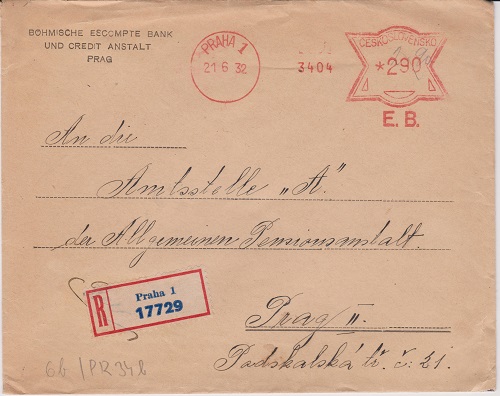 BÖHMISCHE ESCOMPTE BANK
UND CREDIT ANSTALT
PRAG
PRAHA 1
21 6 32
3404
ČESKOSLOVENSKO
*290
E.B.
An die
Amtsstelle „A."
der Allgemeinen Pensionsanstalt.
R
Praha 1
17729
Prag II.
Podskalská tř. č: 21.
6b / PR 34b